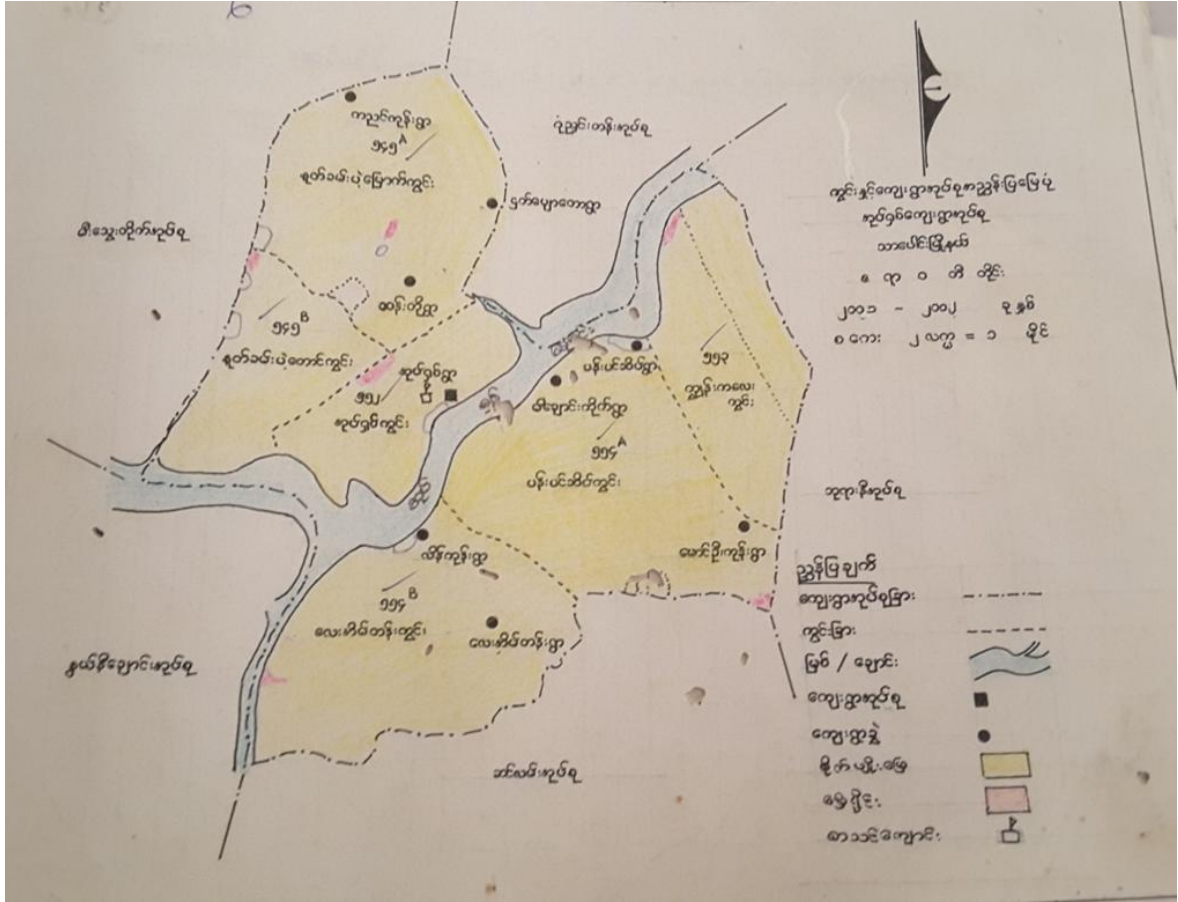 ကညင်ကုန်းရွာ
၅၄၅ A
ရုတ်ခမ်းပဲ့မြောက်ကွင်း
ဂုံညှင်းတန်းအုပ်စု
ငှက်ပျောတောရွာ
ဆန်းတို့ရွာ
၅၄၅ B
ရုတ်ခမ်းပဲ့တောင်ကွင်း
အုပ်ရှစ်ရွာ
၅၅၂
အုပ်ရှစ်ကွင်း
ပန်းပင်ဆိပ်ရွာ
၅၅၃
ကျွန်းကလေး
ကွင်း
ဝါးချောင်းတိုက်ရွာ
၅၅၄ A
ပန်းပင်ဆိပ်ကွင်း
မောင်ဦးကုန်းရွာ
လိန်ကုန်းရွာ
၅၅၄ B
လေးအိမ်တန်းကွင်း
လေးအိမ်တန်းရွာ
နွယ်နီချောင်းအုပ်စု
ဘုရားနီအုပ်စု
ကွင်းနှင့်ကျေးရွာအုပ်စုအညွှန်းပြမြေပုံ
အုပ်ရှစ်ကျေးရွာအုပ်စု
သာပေါင်းမြို့နယ်
ဧ ရာ ဝ တီ တိုင်း
၂၀၀၁ - ၂၀၀၂ ခုနှစ်
စကေး ၂ လက္မ = ၁ မိုင်
ညွှန်ပြချက်
ကျေးရွာအုပ်စုခြား
ကွင်းခြား
မြစ် / ချောင်း
ကျေးရွာအုပ်စု
ကျေးရွာခွဲ
စိုက်ပျိုးမြေ
မြေရိုင်း
စာသင်ကျောင်း